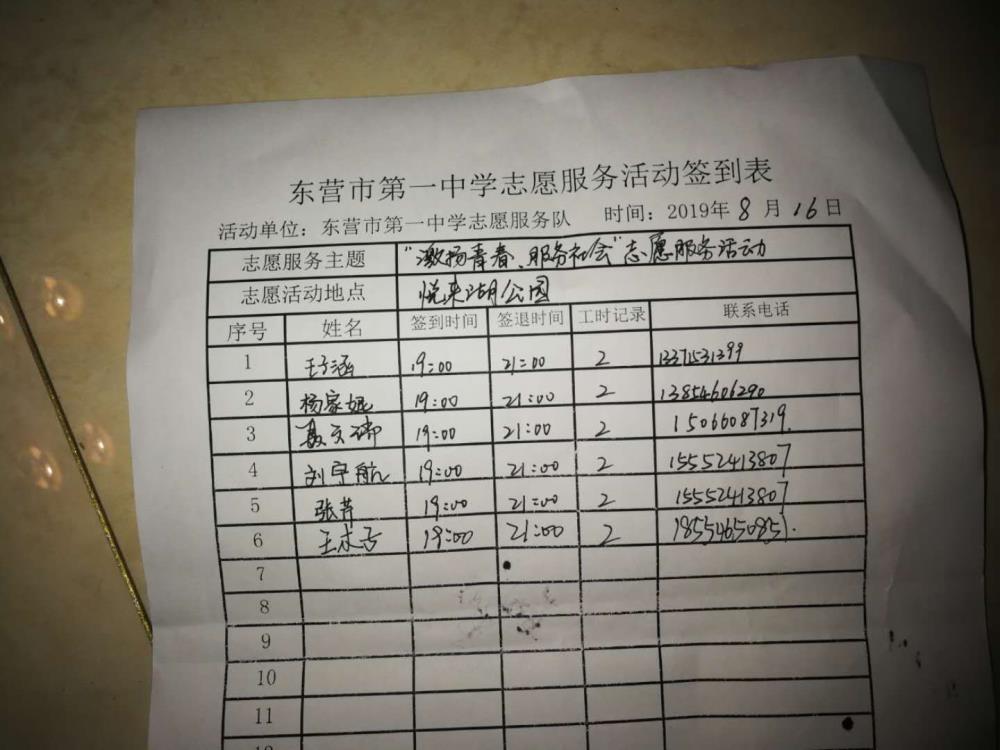 东营市第一中学志愿服务活动签到表
活动单位：东营市第一中学志愿服务队 时间：2019年 8 月 16 日
志愿服务主题 “激扬青春、服务社会”志愿服务活动
志愿活动地点 悦来湖公园
序号 姓名 签到时间 签退时间 工时记录 联系电话
1 王子涵 19:00 21:00 2 13371531399
2 杨家妮 19:00 21:00 2 13854606290
3 19:00 21:00 2 15066087319
4 刘宇航 19:00 21:00 2 15552413807
5 张芹 19:00 21:00 2 15552413807
6 19:00 21:00 2 18554650851
7
8
9
10
11